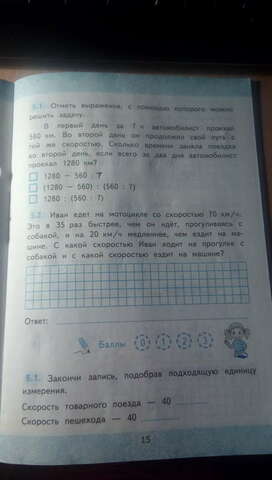 5.1. Отметь выражение, с помощью которого можно
решить задачу.
В первый день за 7 ч автомобилист проехал
560 км. Во второй день он продолжил свой путь с
той же скоростью. Сколько времени заняла поездка
во второй день, если всего за два дня автомобилист
проехал 1280 км?
1280 – 560 : 7
(1280 – 560) : (560 : 7)
1280 : (560 : 7)
5.2. Иван едет на мотоцикле со скоростью 70 км/ч.
Это в 35 раз быстрее, чем он идёт, прогуливаясь с
собакой, и на 20 км/ч медленнее, чем ездит на ма-
шине. С какой скоростью Иван ходит на прогулке с
собакой и с какой скоростью ездит на машине?
Ответ:
Баллы 0 1 2 3
6.1. Закончи запись, подобрав подходящую единицу
измерения.
Скорость товарного поезда — 40
Скорость пешехода — 40
15